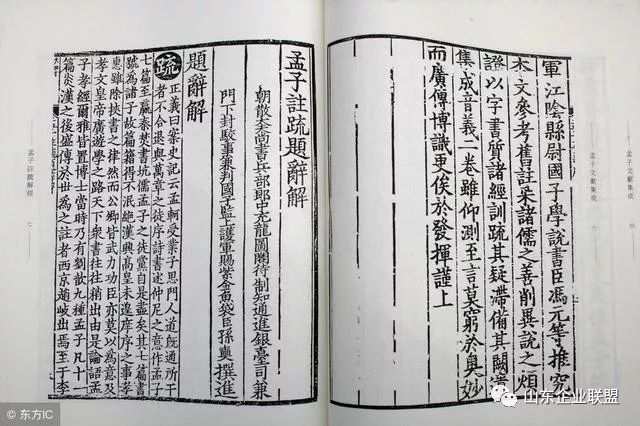 軍江陰縣尉國子學說書臣馮元等推究
本文參考舊註采諸儒之善削異說之煩
證以字書質諸經訓疏其疑滯備其闕遺
集成音義二卷雖仰測至言莫窮於奧妙
而廣傳博識更俟於發揮謹上
孟子文獻集成
孟子文獻集成 六
孟子註疏題辭解
朝散大夫尚書兵部郎中充龍圖閣待制知通進銀臺司兼
門下封駁事兼判國子監上護軍賜紫金魚袋臣孫奭撰進
題辭解
疏 正義曰案史記云孟軻受業子思門人道旣通所干
者不合退與萬章之徒序詩書述仲尼之意作孟子
七篇至嬴秦焚書坑儒孟子之徒黨自是盡矣其七篇書
號為諸子故篇籍得不泯絶漢興高皇未遑庠序之事孝
惠雖除挾書之律然而公卿皆武力功臣亦莫以為意及
孝文皇帝廣遊學之路天下衆書徃徃稍出由是論語孟
子孝經爾雅皆置博士當時乃有劉歆九種孟子凡十一
篇炎漢之後盛傳於世為之註者西京趙岐出焉至于李
孟子註疏解經 七
© 东方IC
山东企业联盟